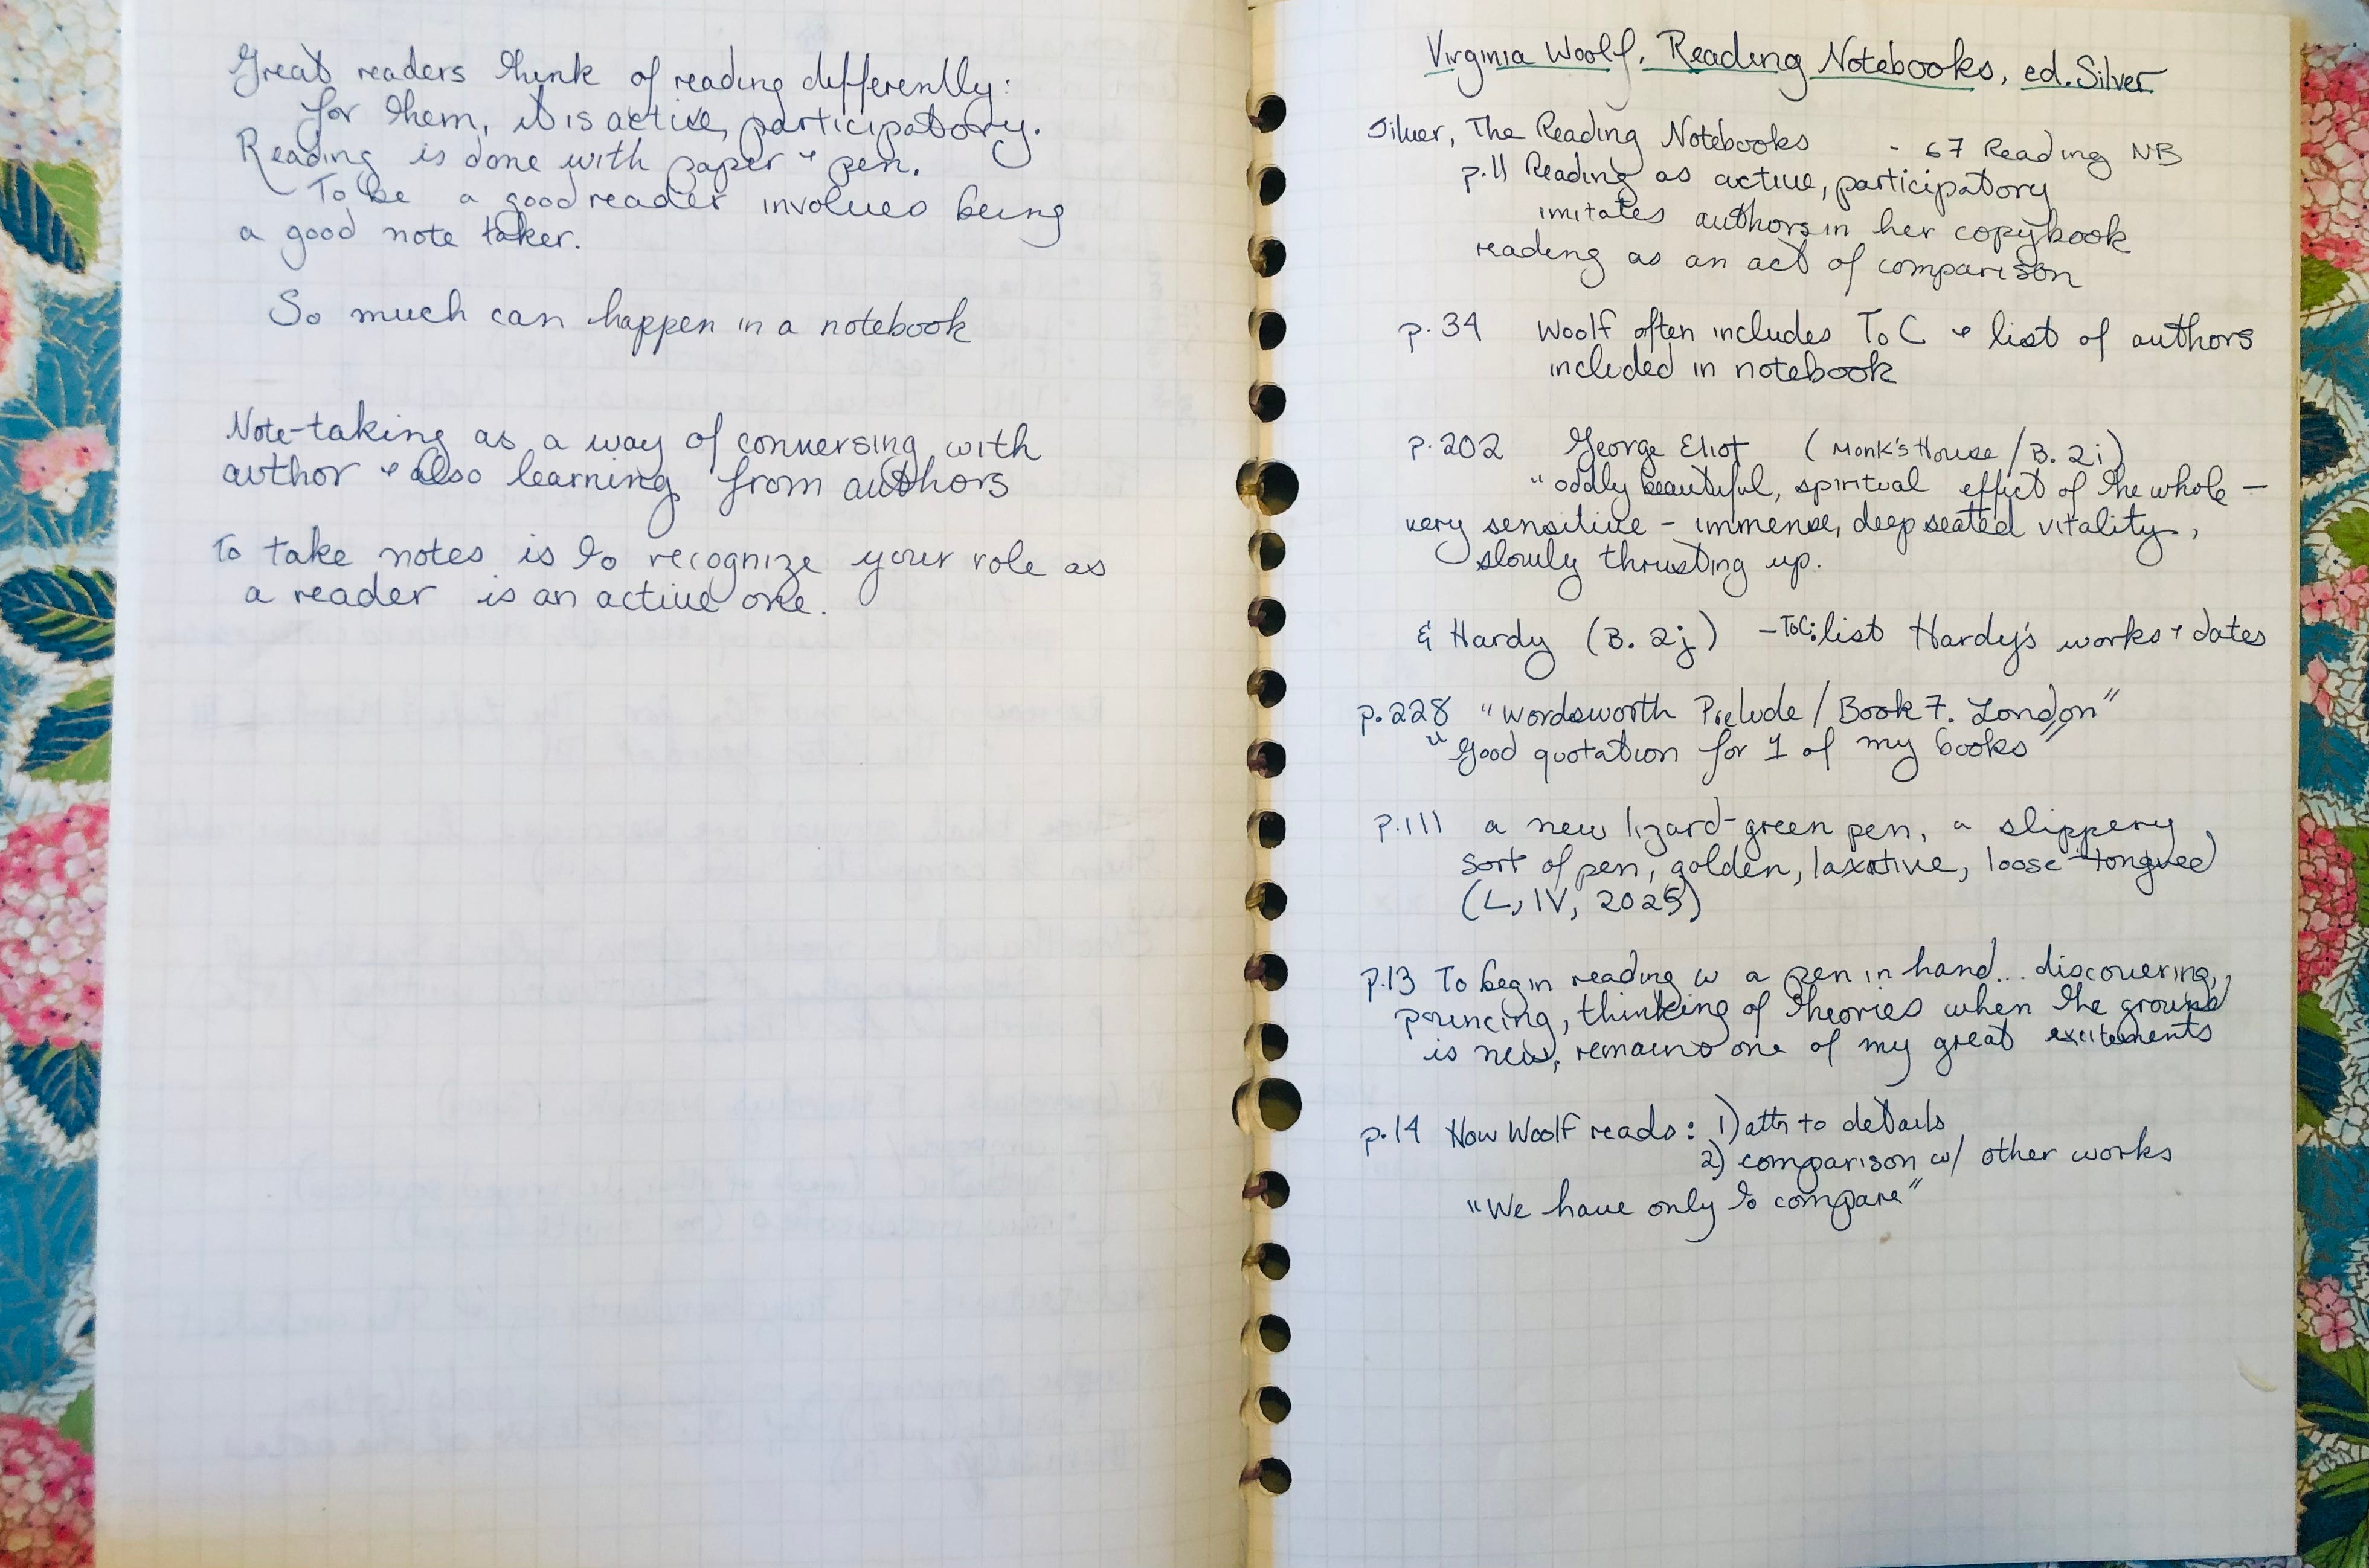 Great readers think of reading differently:
for them, it is active, participatory.
Reading is done with paper + pen.
To be a good reader involves being
a good note taker.
So much can happen in a notebook
Note-taking as a way of conversing with
author + also learning from authors
To take notes is to recognize your role as
a reader is an active one.
Virginia Woolf. Reading Notebooks, ed. Silver
Silver, The Reading Notebooks - 67 Reading NB
p.11 Reading as active, participatory
imitates authors in her copybook
reading as an act of comparison
p.34 Woolf often includes ToC + list of authors
included in notebook
p.202 George Eliot (Monk's House / B. 2i)
"oddly beautiful, spiritual effect of the whole –
very sensitive – immense, deep seated vitality,
slowly thrusting up.
& Hardy (B. 2j) – ToC: list Hardy's works + dates
p.228 "Wordsworth Prelude / Book 7. London"
"Good quotation for 1 of my books"
p.111 a new lizard-green pen, a slippery
sort of pen, golden, laxative, loose-tongued
(L, IV, 2025)
p.13 To begin reading w a pen in hand... discovering,
pouncing, thinking of theories when the ground
is new, remains one of my great excitements
p.14 How Woolf reads: 1) attn to details
2) comparison w/ other works
"We have only to compare"